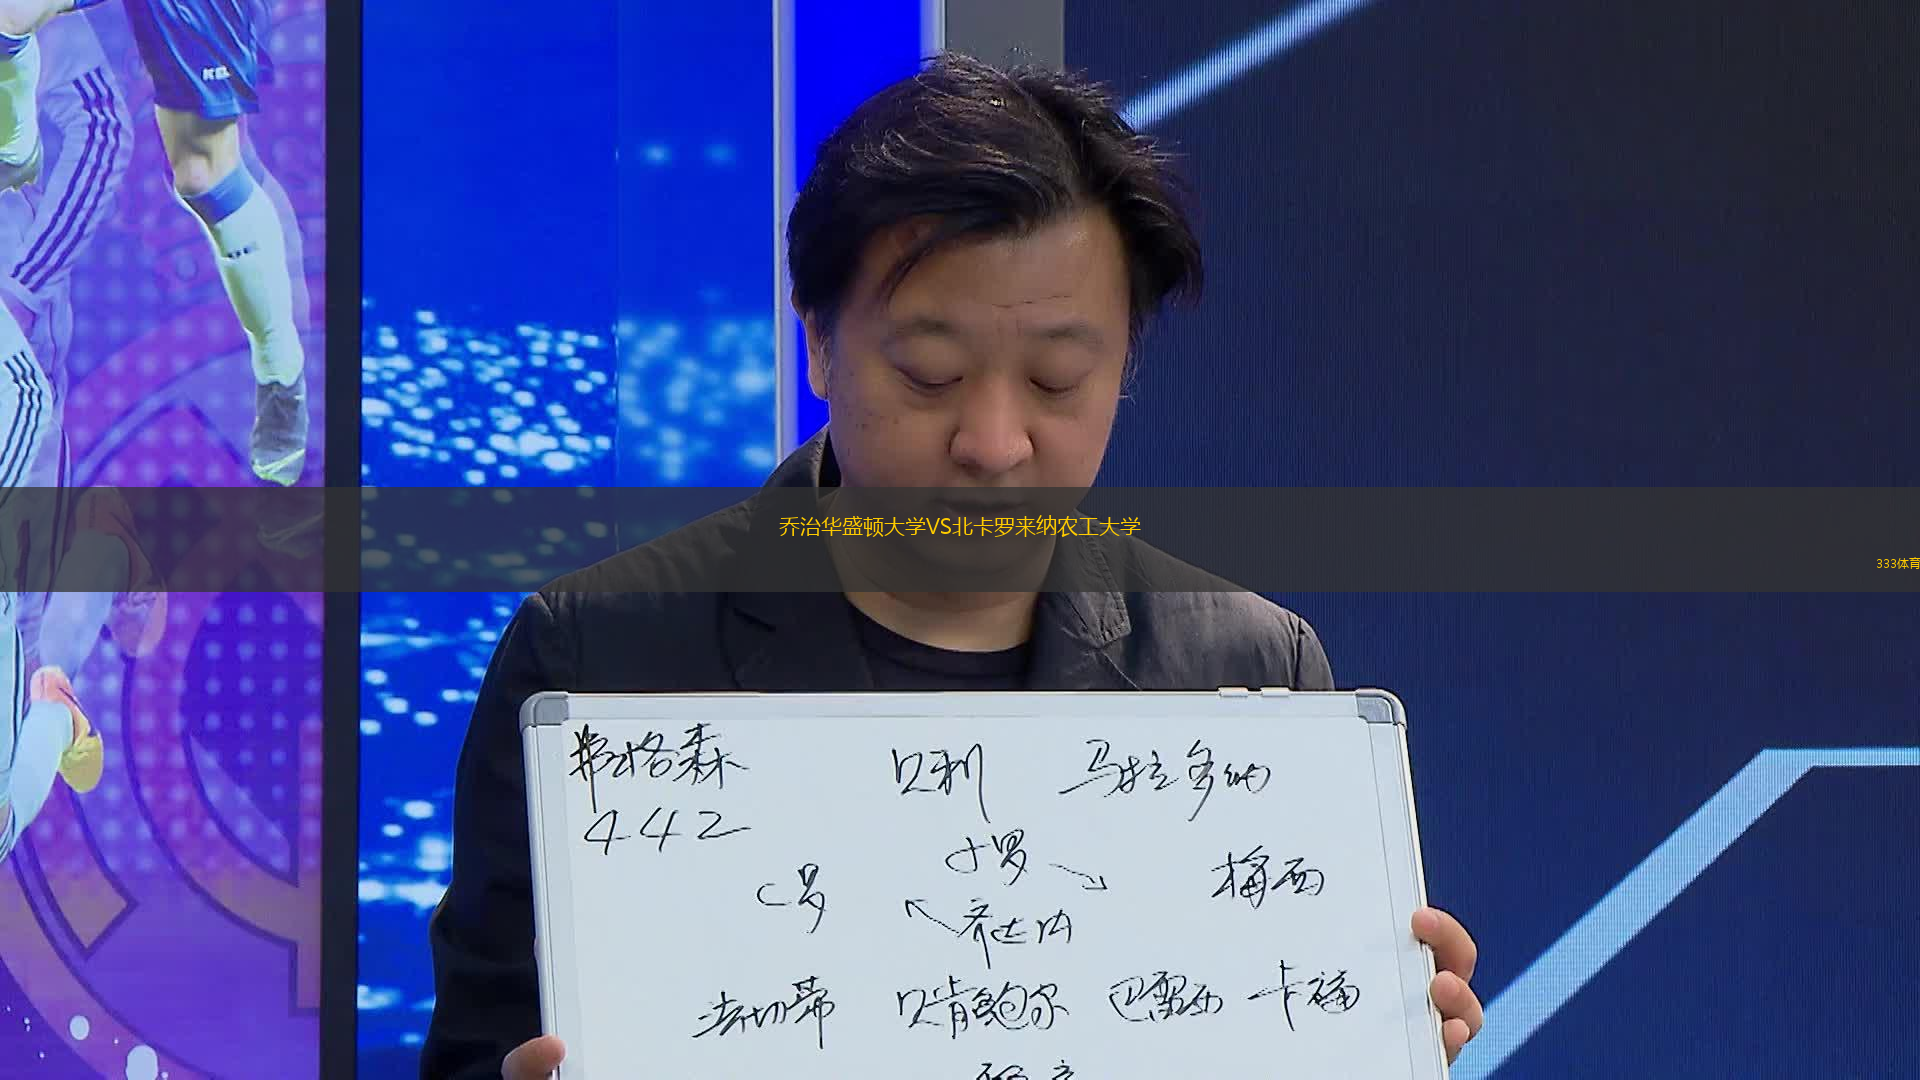 乔治华盛顿大学VS北卡罗来纳农工大学
333体育
弗格森 贝利 马拉多纳
442
小罗
C罗 梅西
齐达内
法切蒂 贝肯鲍尔 巴雷西 卡福